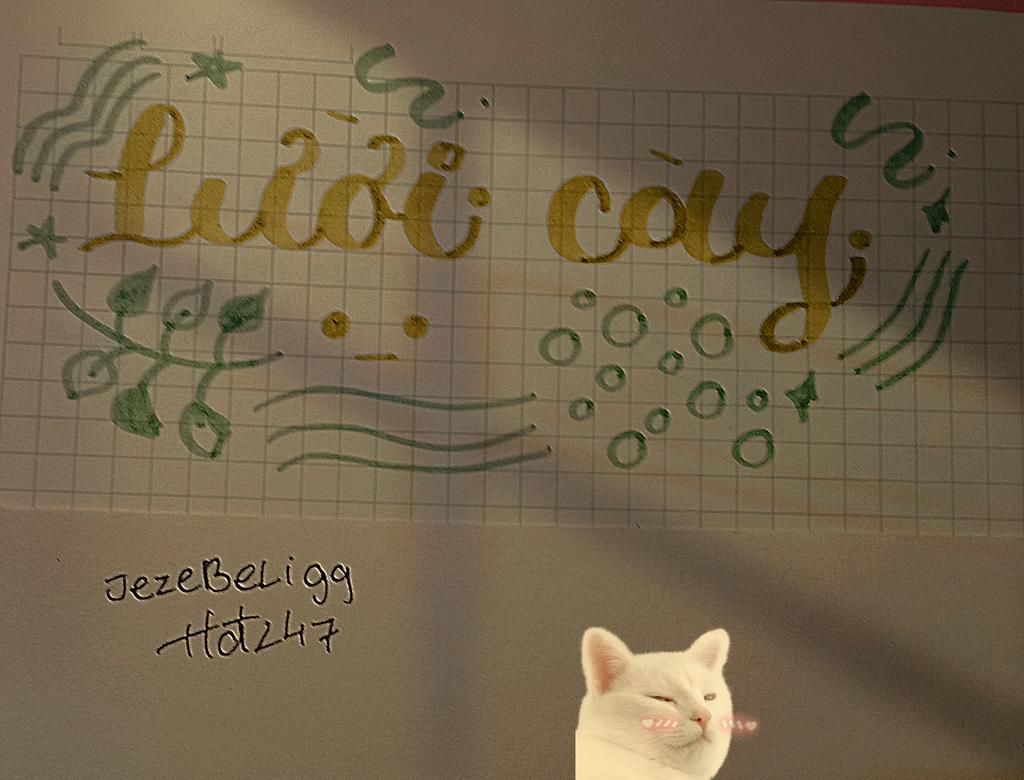 Lười cày
JezeBeLigg
Hot247